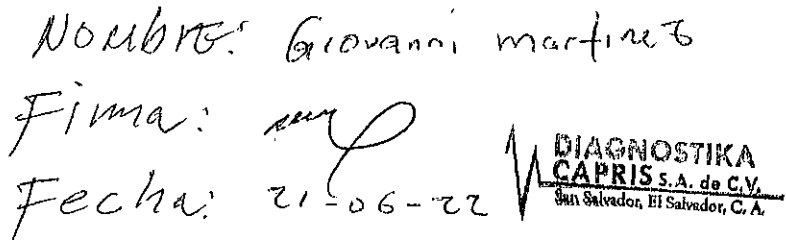 Nombre: Giovanni Martinez
Firma:
Fecha: 21-06-22
DIAGNOSTIKA
CAPRIS S.A. de C.V.
San Salvador, El Salvador, C. A.